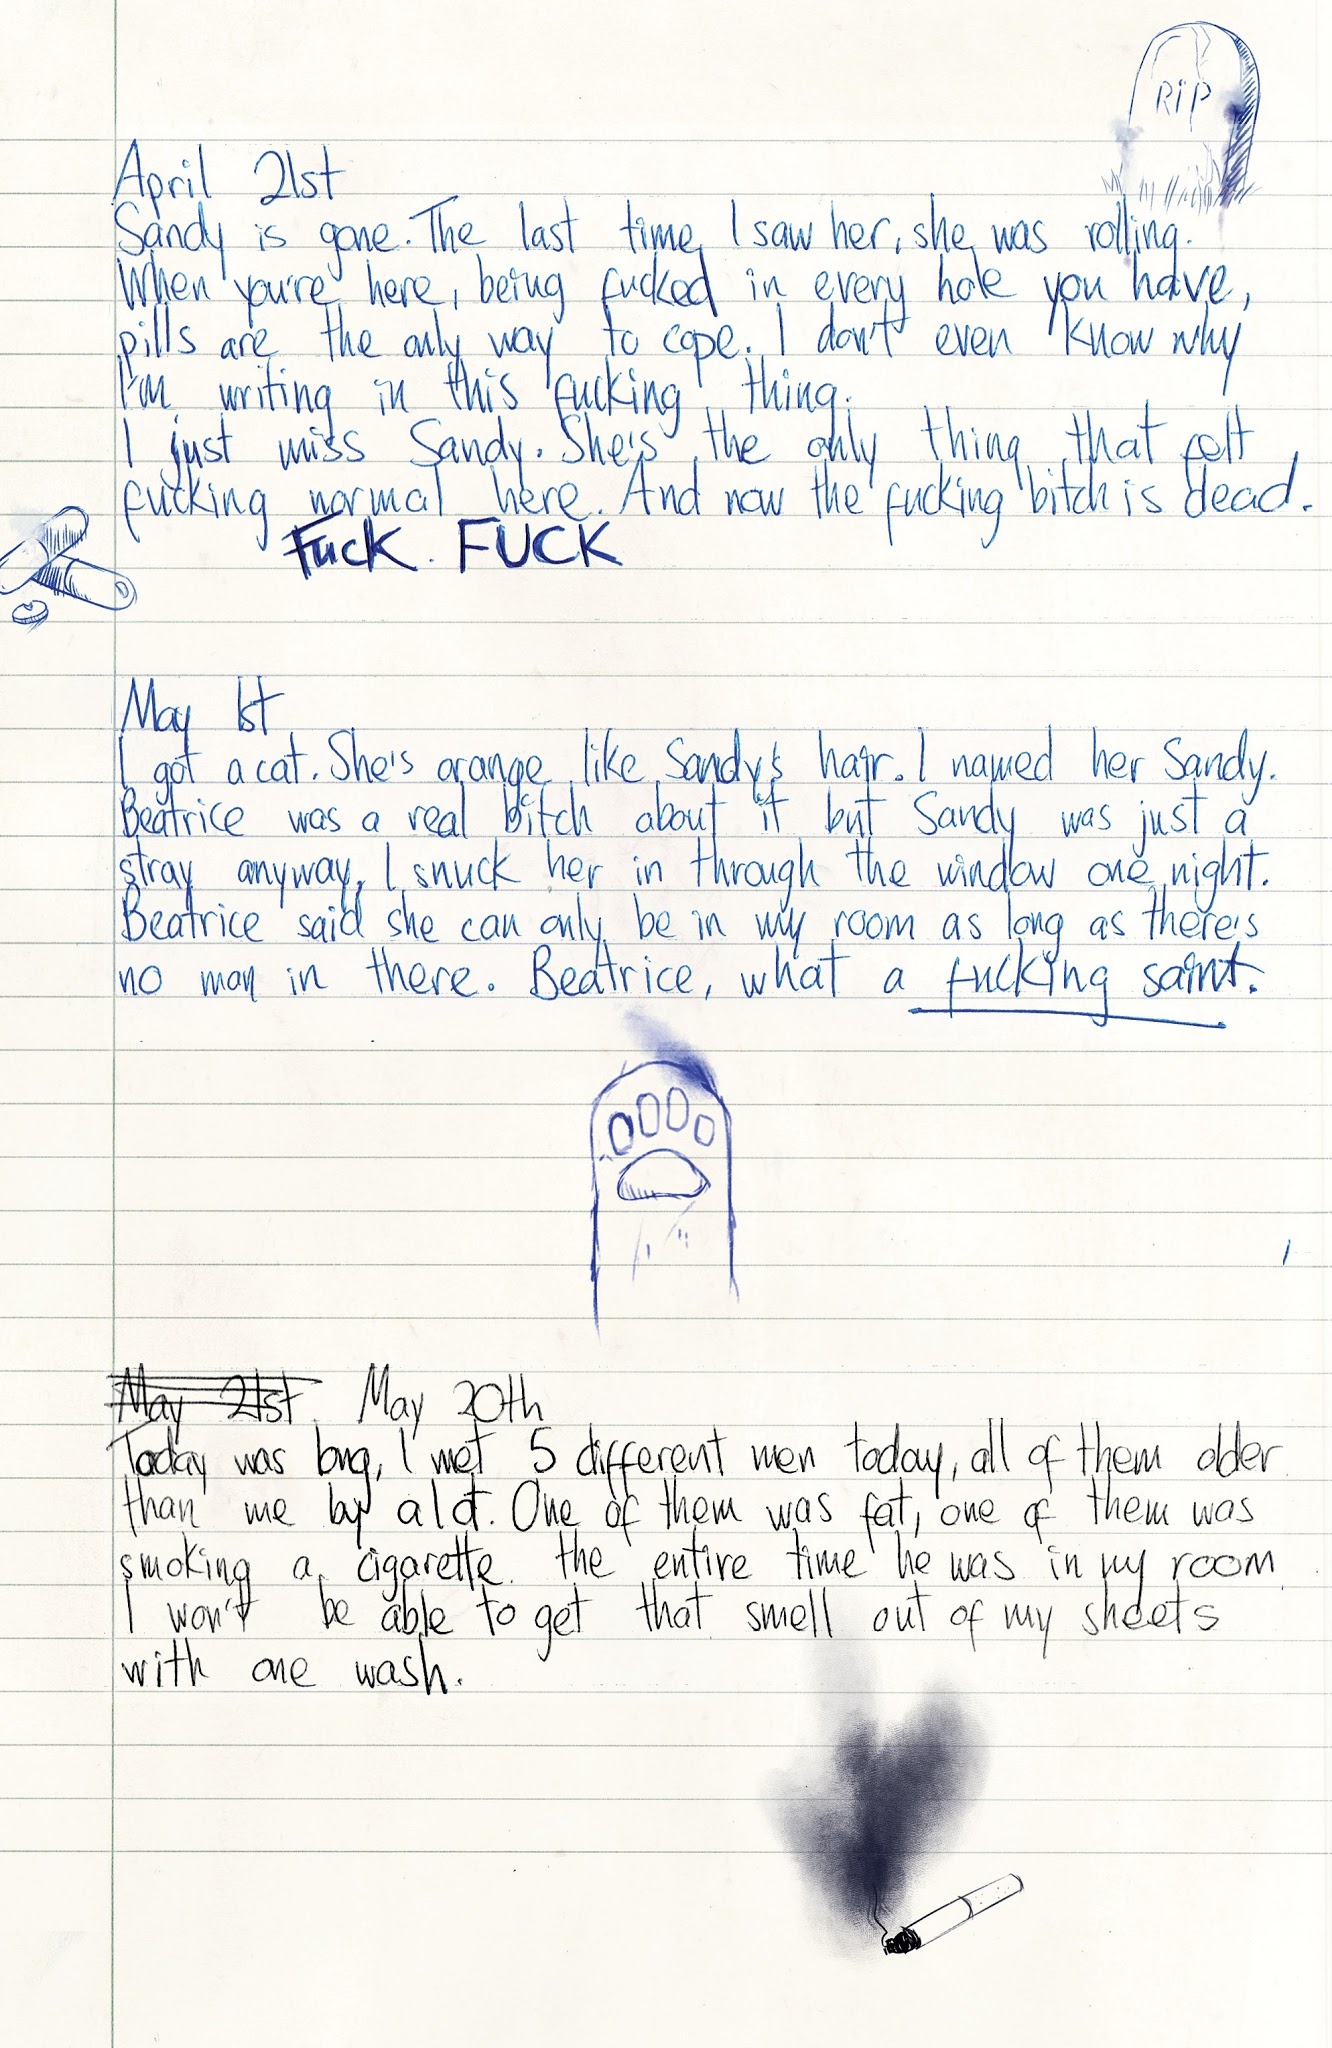 RIP
April 21st
Sandy is gone. The last time I saw her, she was rolling.
When you're here, being fucked in every hole you have,
pills are the only way to cope. I don't even know why
I'm writing in this fucking thing.
I just miss Sandy. She's the only thing that felt
fucking normal here. And now the fucking bitch is dead.
Fuck. FUCK
May 1st
I got a cat. She's orange like Sandy's hair. I named her Sandy.
Beatrice was a real bitch about it but Sandy was just a
stray anyway. I snuck her in through the window one night.
Beatrice said she can only be in my room as long as there's
no man in there. Beatrice, what a fucking saint.
May 21st. May 20th
Today was long, I met 5 different men today, all of them older
than me by a lot. One of them was fat, one of them was
smoking a cigarette the entire time he was in my room
I won't be able to get that smell out of my sheets
with one wash.